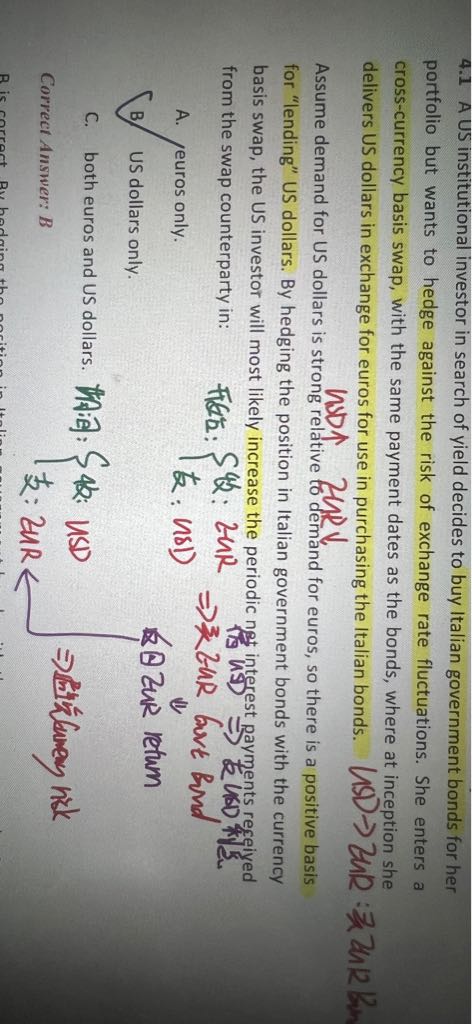 4.1 A US institutional investor in search of yield decides to buy Italian government bonds for her
portfolio but wants to hedge against the risk of exchange rate fluctuations. She enters a
cross-currency basis swap, with the same payment dates as the bonds, where at inception she
delivers US dollars in exchange for euros for use in purchasing the Italian bonds.
USD→EUR:买EUR
USD↑ EUR↓
Assume demand for US dollars is strong relative to demand for euros, so there is a positive basis
for "lending" US dollars. By hedging the position in Italian government bonds with the currency
basis swap, the US investor will most likely increase the periodic net interest payments received
from the swap counterparty in:
开始: 收: EUR ⇒买EUR Govt Bond
支: USD
借USD ⇒支USD利息
A. euros only.
B. US dollars only.
收回EUR return
C. both euros and US dollars.
期间: 收: USD
支: EUR
⇒ Currency risk
Correct Answer: B
B is correct. By hedging the position in Italian